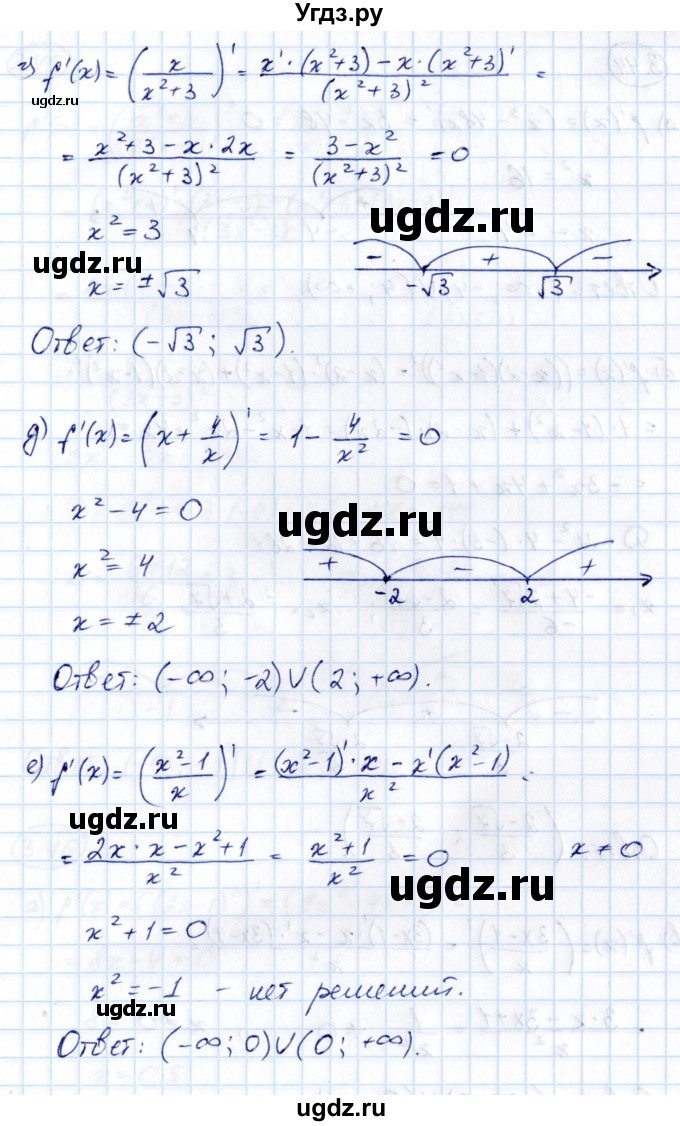 Угдз.ру
г) f'(x) = (x/(x²+3))' = (x'·(x²+3) − x·(x²+3)')/(x²+3)² =
ugdz.ru
= (x²+3−x·2x)/(x²+3)² = (3−x²)/(x²+3)² = 0
x² = 3
ugdz.ru
ugdz.ru
x = ±√3
− + −
−√3 √3
Ответ: (−√3; √3).
д) f'(x) = (x + 4/x)' = 1 − 4/x² = 0
x² − 4 = 0
ugdz.ru
x² = 4
+ − +
−2 2
x = ±2
Ответ: (−∞; −2)∪(2; +∞).
е) f'(x) = ((x²−1)/x)' = ((x²−1)'·x − x'(x²−1))/x² =
= (2x·x − x²+1)/x² = (x²+1)/x² = 0 x ≠ 0
ugdz.ru
x² + 1 = 0
x² = −1 − нет решений.
Ответ: (−∞; 0)∪(0; +∞).
ugdz.ru